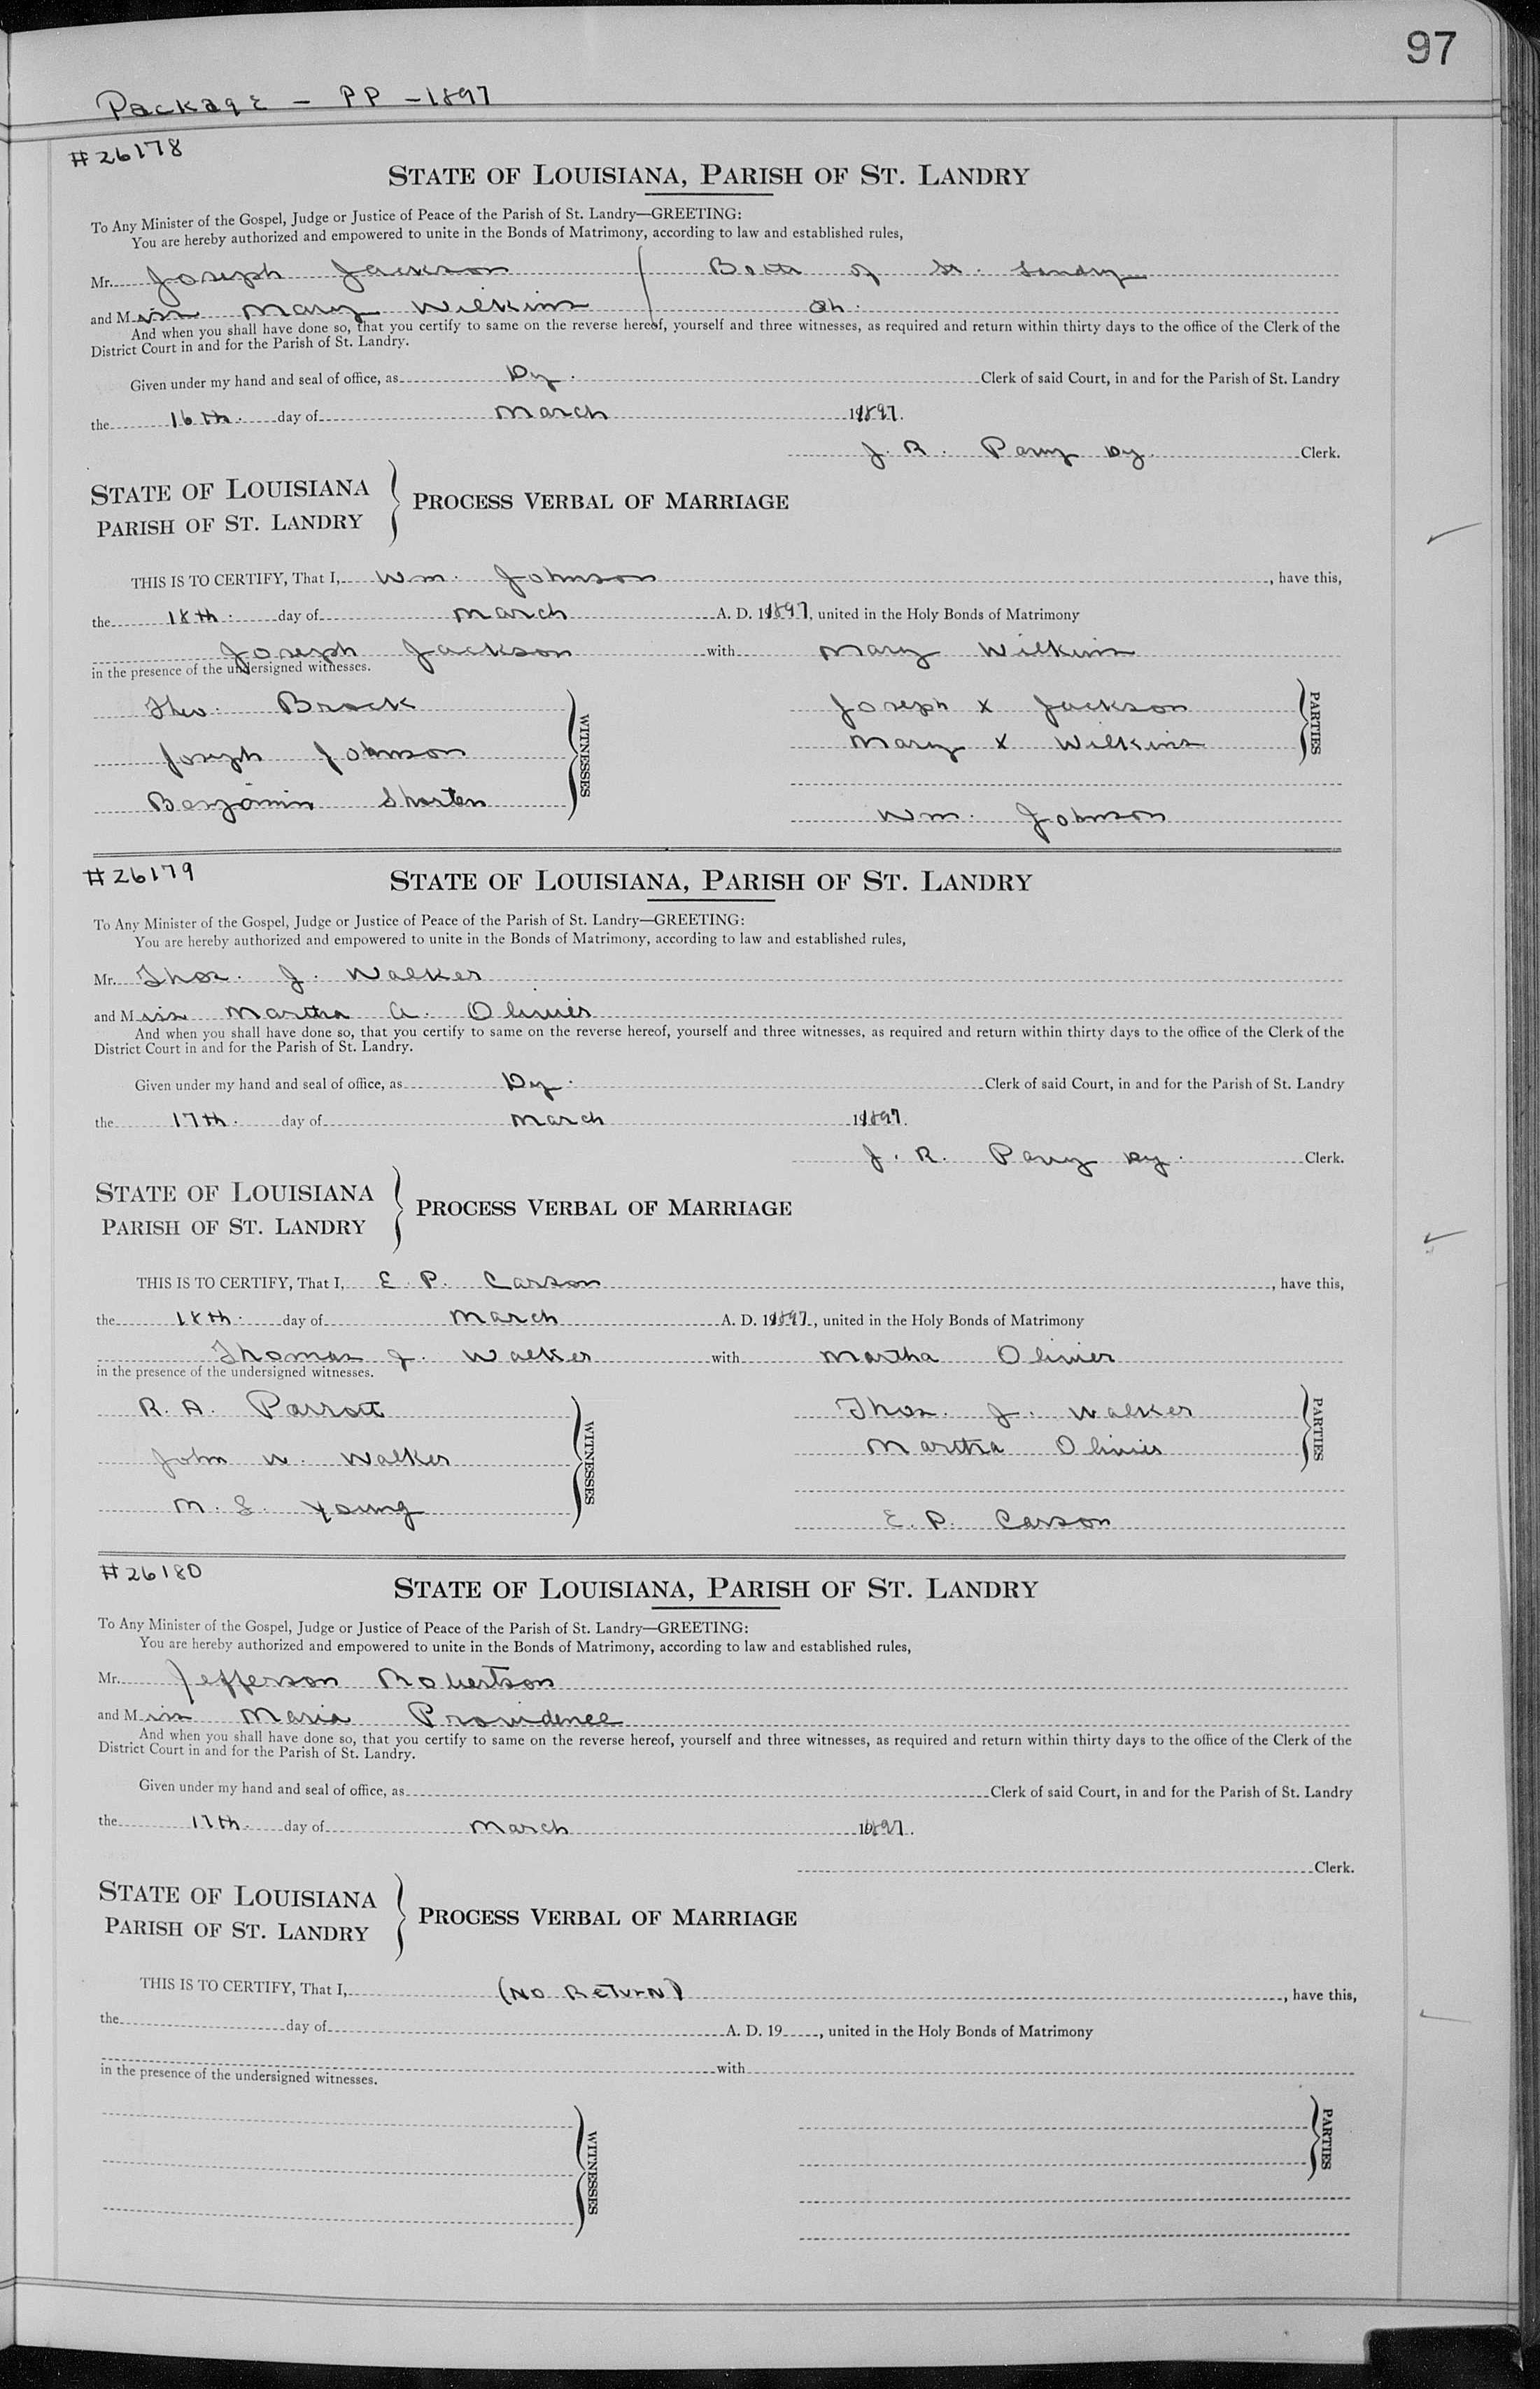 97
Package - PP - 1897
#26178
STATE OF LOUISIANA, PARISH OF ST. LANDRY
To Any Minister of the Gospel, Judge or Justice of Peace of the Parish of St. Landry—GREETING:
You are hereby authorized and empowered to unite in the Bonds of Matrimony, according to law and established rules,
Mr. Joseph Jackson Both of St. Landry
and Miss Mary Wilkins Ph.
And when you shall have done so, that you certify to same on the reverse hereof, yourself and three witnesses, as required and return within thirty days to the office of the Clerk of the
District Court in and for the Parish of St. Landry.
Given under my hand and seal of office, as Dy. Clerk of said Court, in and for the Parish of St. Landry
the 16th. day of March 1897.
J. R. Parry Dy. Clerk.
STATE OF LOUISIANA
PARISH OF ST. LANDRY } PROCESS VERBAL OF MARRIAGE
THIS IS TO CERTIFY, That I, Wm. Johnson, have this,
the 18th. day of March A. D. 1897, united in the Holy Bonds of Matrimony
Joseph Jackson with Mary Wilkins
in the presence of the undersigned witnesses.
Theo. Brock Joseph X Jackson
Joseph Johnson WITNESSES Mary X Wilkins PARTIES
Benjamin Shorten
Wm. Johnson
#26179
STATE OF LOUISIANA, PARISH OF ST. LANDRY
To Any Minister of the Gospel, Judge or Justice of Peace of the Parish of St. Landry—GREETING:
You are hereby authorized and empowered to unite in the Bonds of Matrimony, according to law and established rules,
Mr. Thos. J. Walker
and Miss Martha A. Olivier
And when you shall have done so, that you certify to same on the reverse hereof, yourself and three witnesses, as required and return within thirty days to the office of the Clerk of the
District Court in and for the Parish of St. Landry.
Given under my hand and seal of office, as Dy. Clerk of said Court, in and for the Parish of St. Landry
the 17th. day of March 1897.
J. R. Parry Dy. Clerk.
STATE OF LOUISIANA
PARISH OF ST. LANDRY } PROCESS VERBAL OF MARRIAGE
THIS IS TO CERTIFY, That I, E. P. Carson, have this,
the 18th. day of March A. D. 1897, united in the Holy Bonds of Matrimony
Thomas J. Walker with Martha Olivier
in the presence of the undersigned witnesses.
R. A. Parrott Thos. J. Walker
John W. Walker WITNESSES Martha Olivier PARTIES
M. S. Young
E. P. Carson
#26180
STATE OF LOUISIANA, PARISH OF ST. LANDRY
To Any Minister of the Gospel, Judge or Justice of Peace of the Parish of St. Landry—GREETING:
You are hereby authorized and empowered to unite in the Bonds of Matrimony, according to law and established rules,
Mr. Jefferson Robertson
and Miss Maria Providence
And when you shall have done so, that you certify to same on the reverse hereof, yourself and three witnesses, as required and return within thirty days to the office of the Clerk of the
District Court in and for the Parish of St. Landry.
Given under my hand and seal of office, as Clerk of said Court, in and for the Parish of St. Landry
the 17th. day of March 1897.
Clerk.
STATE OF LOUISIANA
PARISH OF ST. LANDRY } PROCESS VERBAL OF MARRIAGE
THIS IS TO CERTIFY, That I, (NO RETURN), have this,
the day of A. D. 19, united in the Holy Bonds of Matrimony
with
in the presence of the undersigned witnesses.
WITNESSES PARTIES